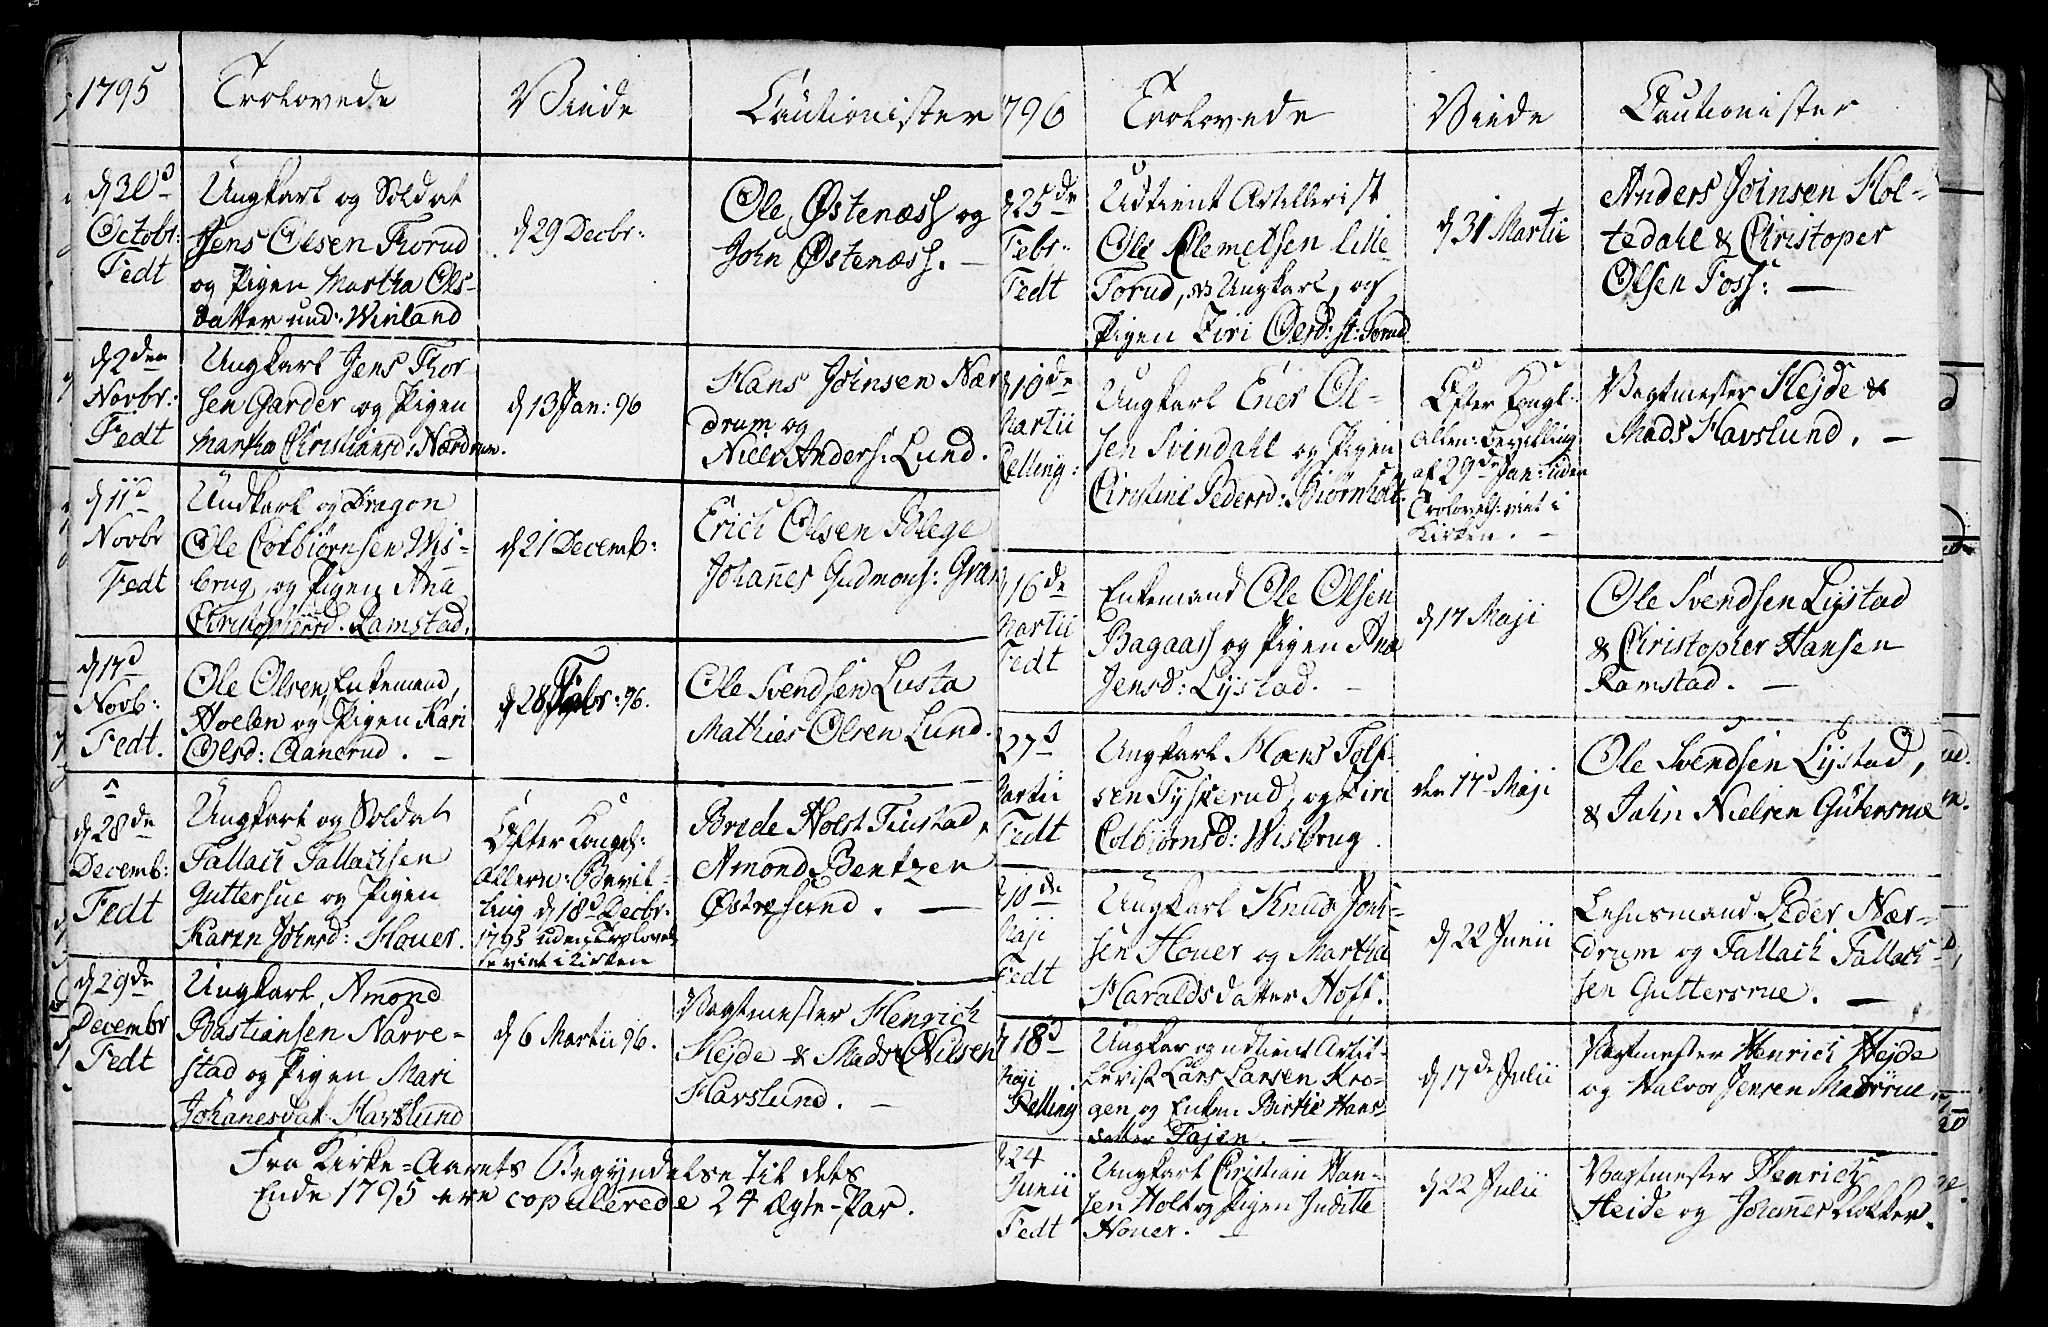 1795
Trolovede
Viede
Cautionister
d 30d
Octobr:
Fedt
Ungkarl og Soldat
Jens Olsen Thorud
og Pigen Martha Ols-
datter und: Winland
d 29 Decbr:
Ole Østenæss og
John Østenæss. –
d 2den
Novbr:
Fedt
Ungkarl Jens Thor
sen Garder og Pigen
Martha Christiansd: Nærdrum.
d 13 Jan: 96
Hans Johnsen Nær
drum og
Niels Anders: Lund.
d 11d
Novbr
Fedt
Undkarl og Dragon
Ole Colbiørnsen Wis-
brug og Pigen Ana
Christophersd. Ramstad.
d 21 Decemb:
Erich Olsen Blege
Johanes Gudmons: Gran
d 17d
Novb:
Fedt.
Ole Olsen, Enkemand,
Hoelen og Pigen Kari
Olsd: Aanerud. –
d 28 Febr: 96.
Ole Svendsen Lusta
Mathies Olsen Lund.
d 28de
Decemb:
Fedt
Ungkarl og Soldat
Tallach Tallachsen
Guttersrue og Pigen
Karen Johnsd: Houer.
Efter Kongel:
Allern: Bevil-
ling d 18d Decbr.
1795 uden Trolovel-
se viet i Kirken
Brede Holst Tiustad,
Amond Bentzen
Østresund. –
d 29de
Decembr
Fedt
Ungkarl Amond
Bastiansen Narve-
stad og Pigen Mari
Johanesdat: Havslund
d 6 Martii 96.
Vagtmester Henrich
Hejde & Mads Nilsen
Havslund. –
Fra Kirke-Aarets Begyndelse til dets
Ende 1795 ere copulerede 24 Ægte-Par.
796
Trolovede
Viede
Cautionister
d 25de
Febr:
Fedt
Udtient Artillerist
Ole Clemetsen lille
Torud, Ungkarl, og
Pigen Siri Olesd: st: Torud
d 31 Martii
Anders Johnsen Hol-
tedahl & Christopher
Olsen Foss: –
d 10de
Martii
Relling:
Ungkarl Ener Ol-
sen Svendahl og Pigen
Christine Pedersd: Biørnholt.
Efter Kongl:
Allern: Bevilling
af 29de Jan: uden
Trolovels: viet i
Kirken. –
Vagtmester Hejde &
Mads Havslund. –
16de
Martii
Fedt
Enkemand Ole Olsen
Bagaass og Pigen Anæ
Jensd: Lystad. –
d 17 Maji
Ole Svendsen Lystad
& Christopher Hansen
Ramstad. –
27d
Martii
Fedt
Ungkarl Hans Tolf-
sen Tyskerud, og Siri
Colbiørnsd: Wisbrug.
den 17d Maji
Ole Svendsen Lystad,
& John Nielsen Gutersrue
d 10de
Maji
Fedt
Ungkarl Knud Joh-
sen Houer og Martha
Haraldsdatter Hoff.
d 22 Junii
Lehnsmand Peder Nær-
drum og Tallach Tallach-
sen Guttersrue. –
d 18d
Maji
Relling
Ungkar og udtient Artil-
lerist Lars Larsen Kro-
gen og Enken Birthe Hans-
datter Fajen. –
d 17de Julii
Vagtmester Henrich Hejde
og Halvor Jensen Madsrue.
d 24
Junii
Fedt
Ungkarl Christian Han-
sen Holt og Pigen Judithe
Houer. –
d 22 Julii
Vagtmester Henrich
Heide og Johannes Klokker.